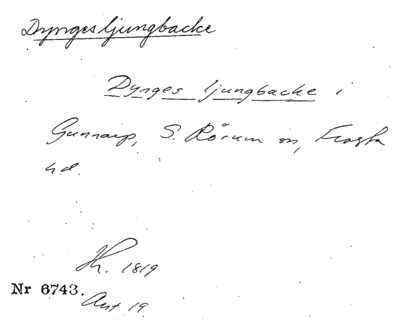 Dyngesljungbacke
Dynges ljungbacke i
Gunnarp, S. Rörum sn, Frosta
hd.
Hr. 1819
Nr 6743.
Ant 19